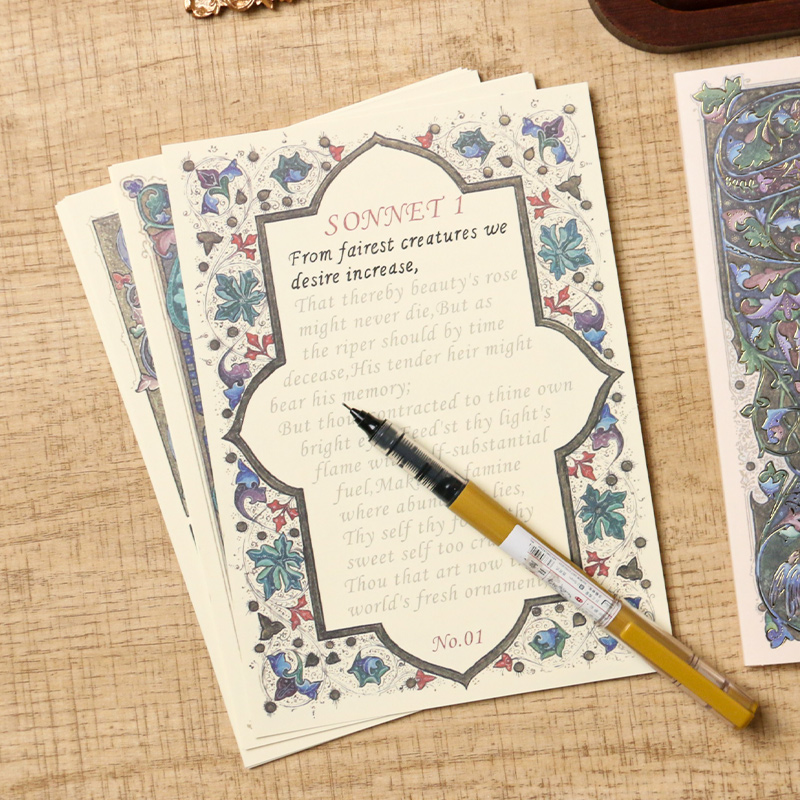 SONNET 1
From fairest creatures we
desire increase,
That thereby beauty's rose
might never die,But as
the riper should by time
decease,His tender heir might
bear his memory;
But thou contracted to thine own
bright Feed'st thy light's
flame self-substantial
fuel, famine
where lies,
Thy self thy thy
sweet self too
Thou that art now
world's fresh ornament
No.01